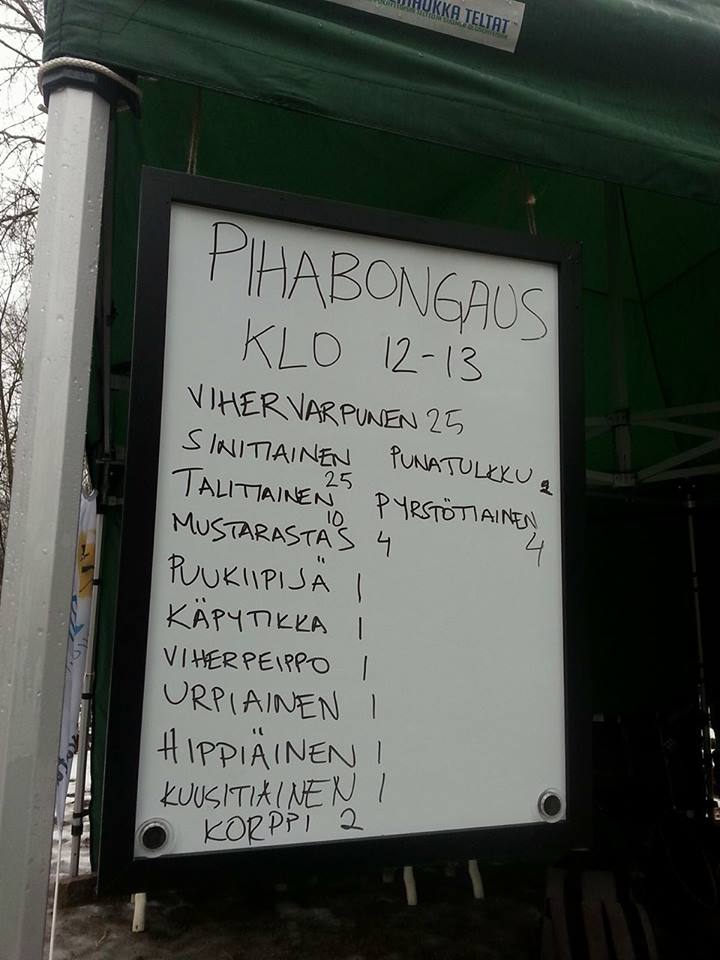 HAUKKA TELTAT
PIHABONGAUS
KLO 12-13
VIHERVARPUNEN 25
SINITIAINEN 25
TALITIAINEN 10
MUSTARASTAS 4
PUUKIIPIJÄ 1
KÄPYTIKKA 1
VIHERPEIPPO 1
URPIAINEN 1
HIPPIÄINEN 1
KUUSITIAINEN 1
KORPPI 2
PUNATULKKU 2
PYRSTÖTIAINEN 4